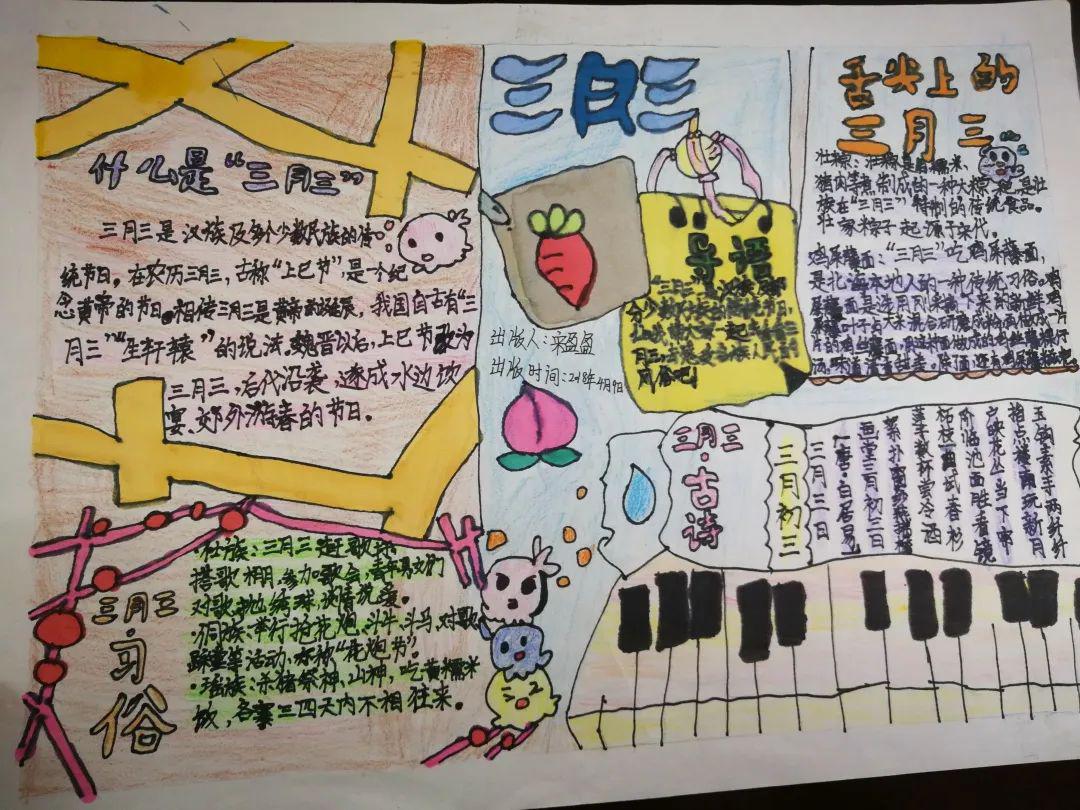 什么是“三月三”
三月三是汉族及多个少数民族的传
统节日。在农历三月三，古称“上巳节”，是一个纪
念黄帝的节日。相传三月三是黄帝的诞辰，我国自古有“三
月三”“生轩辕”的说法。魏晋以后，上巳节改为
三月三，后代沿袭，遂成水边饮
宴、郊外游春的节日。
三月三
习俗
·壮族：三月三赶歌圩
搭歌棚，参加歌会，青年男女们
对歌抛绣球，谈情说爱。
·侗族：举行抢花炮、斗牛、斗马、对歌
踩堂等活动，亦称“花炮节”。
·瑶族：杀猪祭神，山神，吃黄糯米
饭，各寨三四天内不相往来。
三月三
出版人：宋盈盈
出版时间：2018年4月9日
导语
“三月三”是汉族及
月俗吧
舌尖上的
三月三
壮粽：壮粽是由糯米
猪肉等煮制成的一种大粽
族在“三月三”特制的传统食品。
壮家粽子起源于宋代。
鸡屎藤面：“三月三”吃鸡屎藤面，
是北海本地人的一种传统习俗。鸡
屎藤面是选用刚采摘下来的新鲜鸡
屎藤叶子与大米混合研磨成粉或做成一片
片的鸡屎藤面，
三月三
·古诗
三月初三
三月三日
（唐·白居易）
画堂三月初三日
絮扑窗纱燕拂檐
莲子数杯尝冷酒
柘枝一曲试春衫
阶临池面胜看镜
户映花丛当下帘
指点楼南玩新月
玉钩素手两纤纤